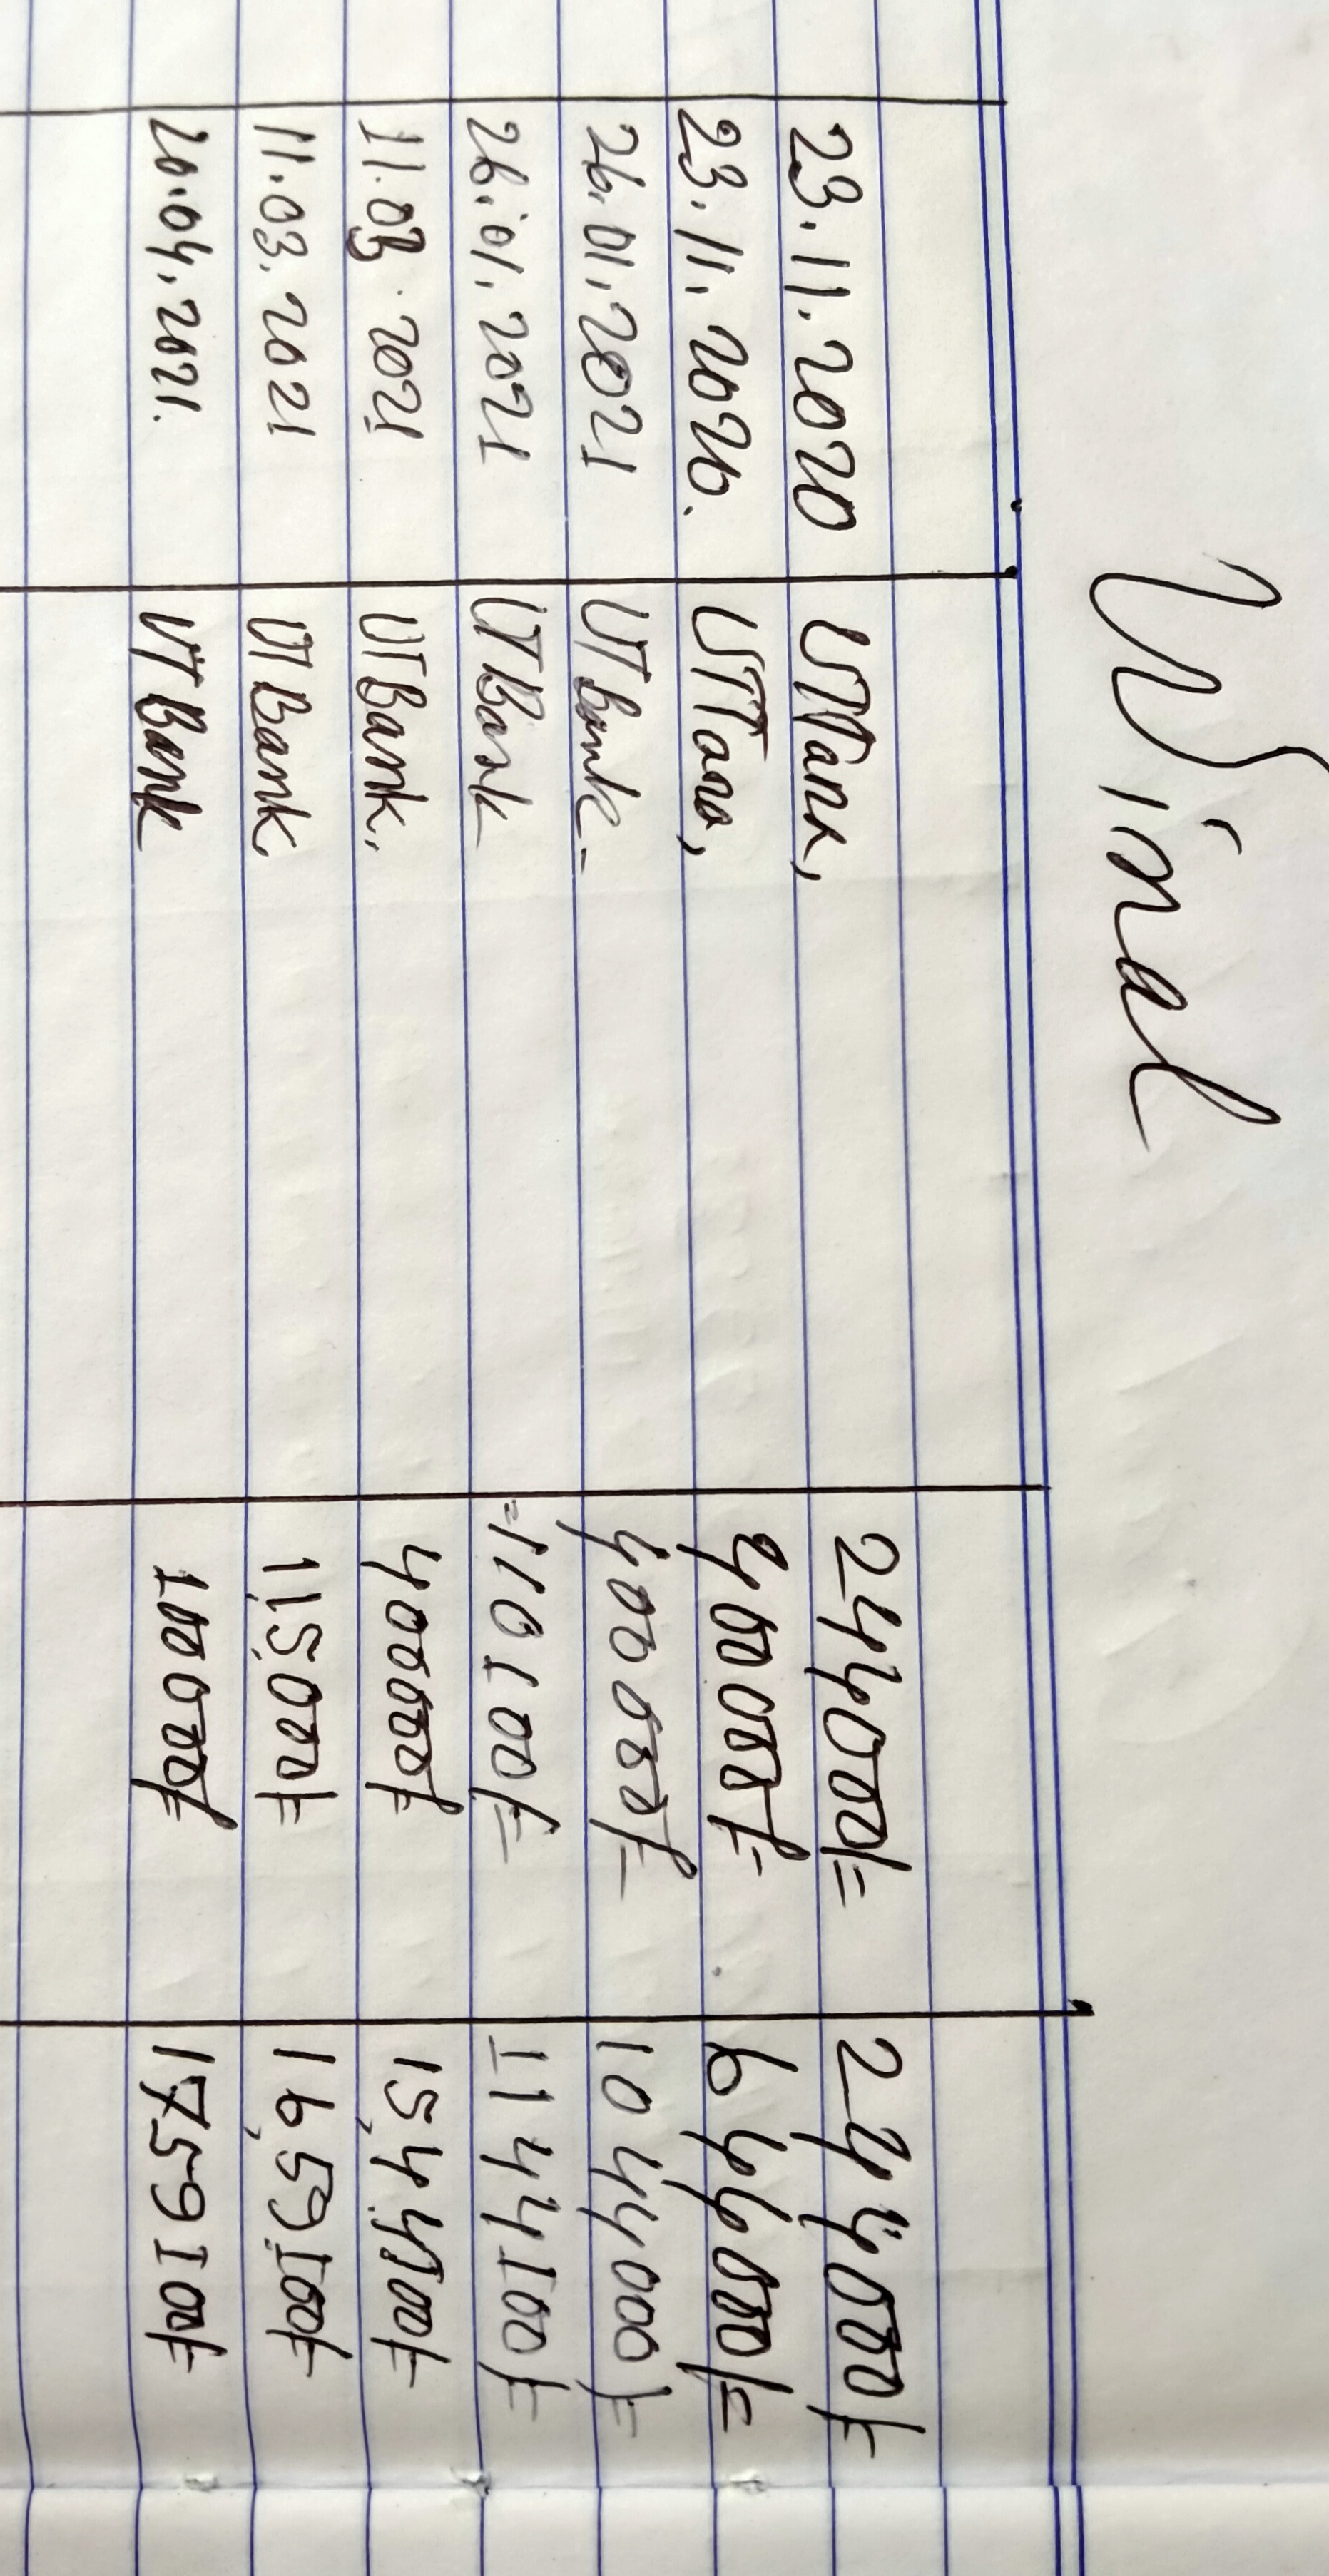 Winal
23.11.2020 UTTank, 244000/= 244000/=
23.11.2020. UTTano, 400000/= 644000/=
26.01.2021 UT Bank - 400000/= 1044000/=
26.01.2021 UTBank =110100/= 1144100/=
11.03.2021 UTBank, 400000/= 15,44100/=
11.03.2021 UTBank, 1,15,000/= 16,59100/=
20.04.2021. UTBank 100000/= 1759100/=